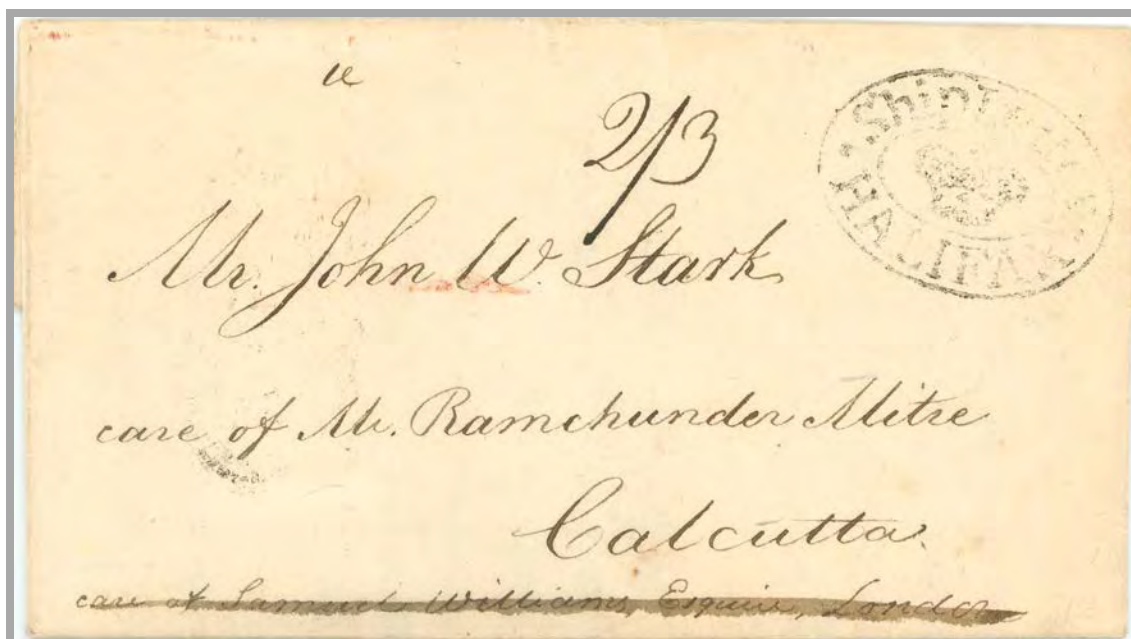 2/3
Ship Letter
HALIFAX
Mr. John W. Stark
care of Mr. Ramchunder Mitre
Calcutta.
care of Samuel Williams, Esquire, London